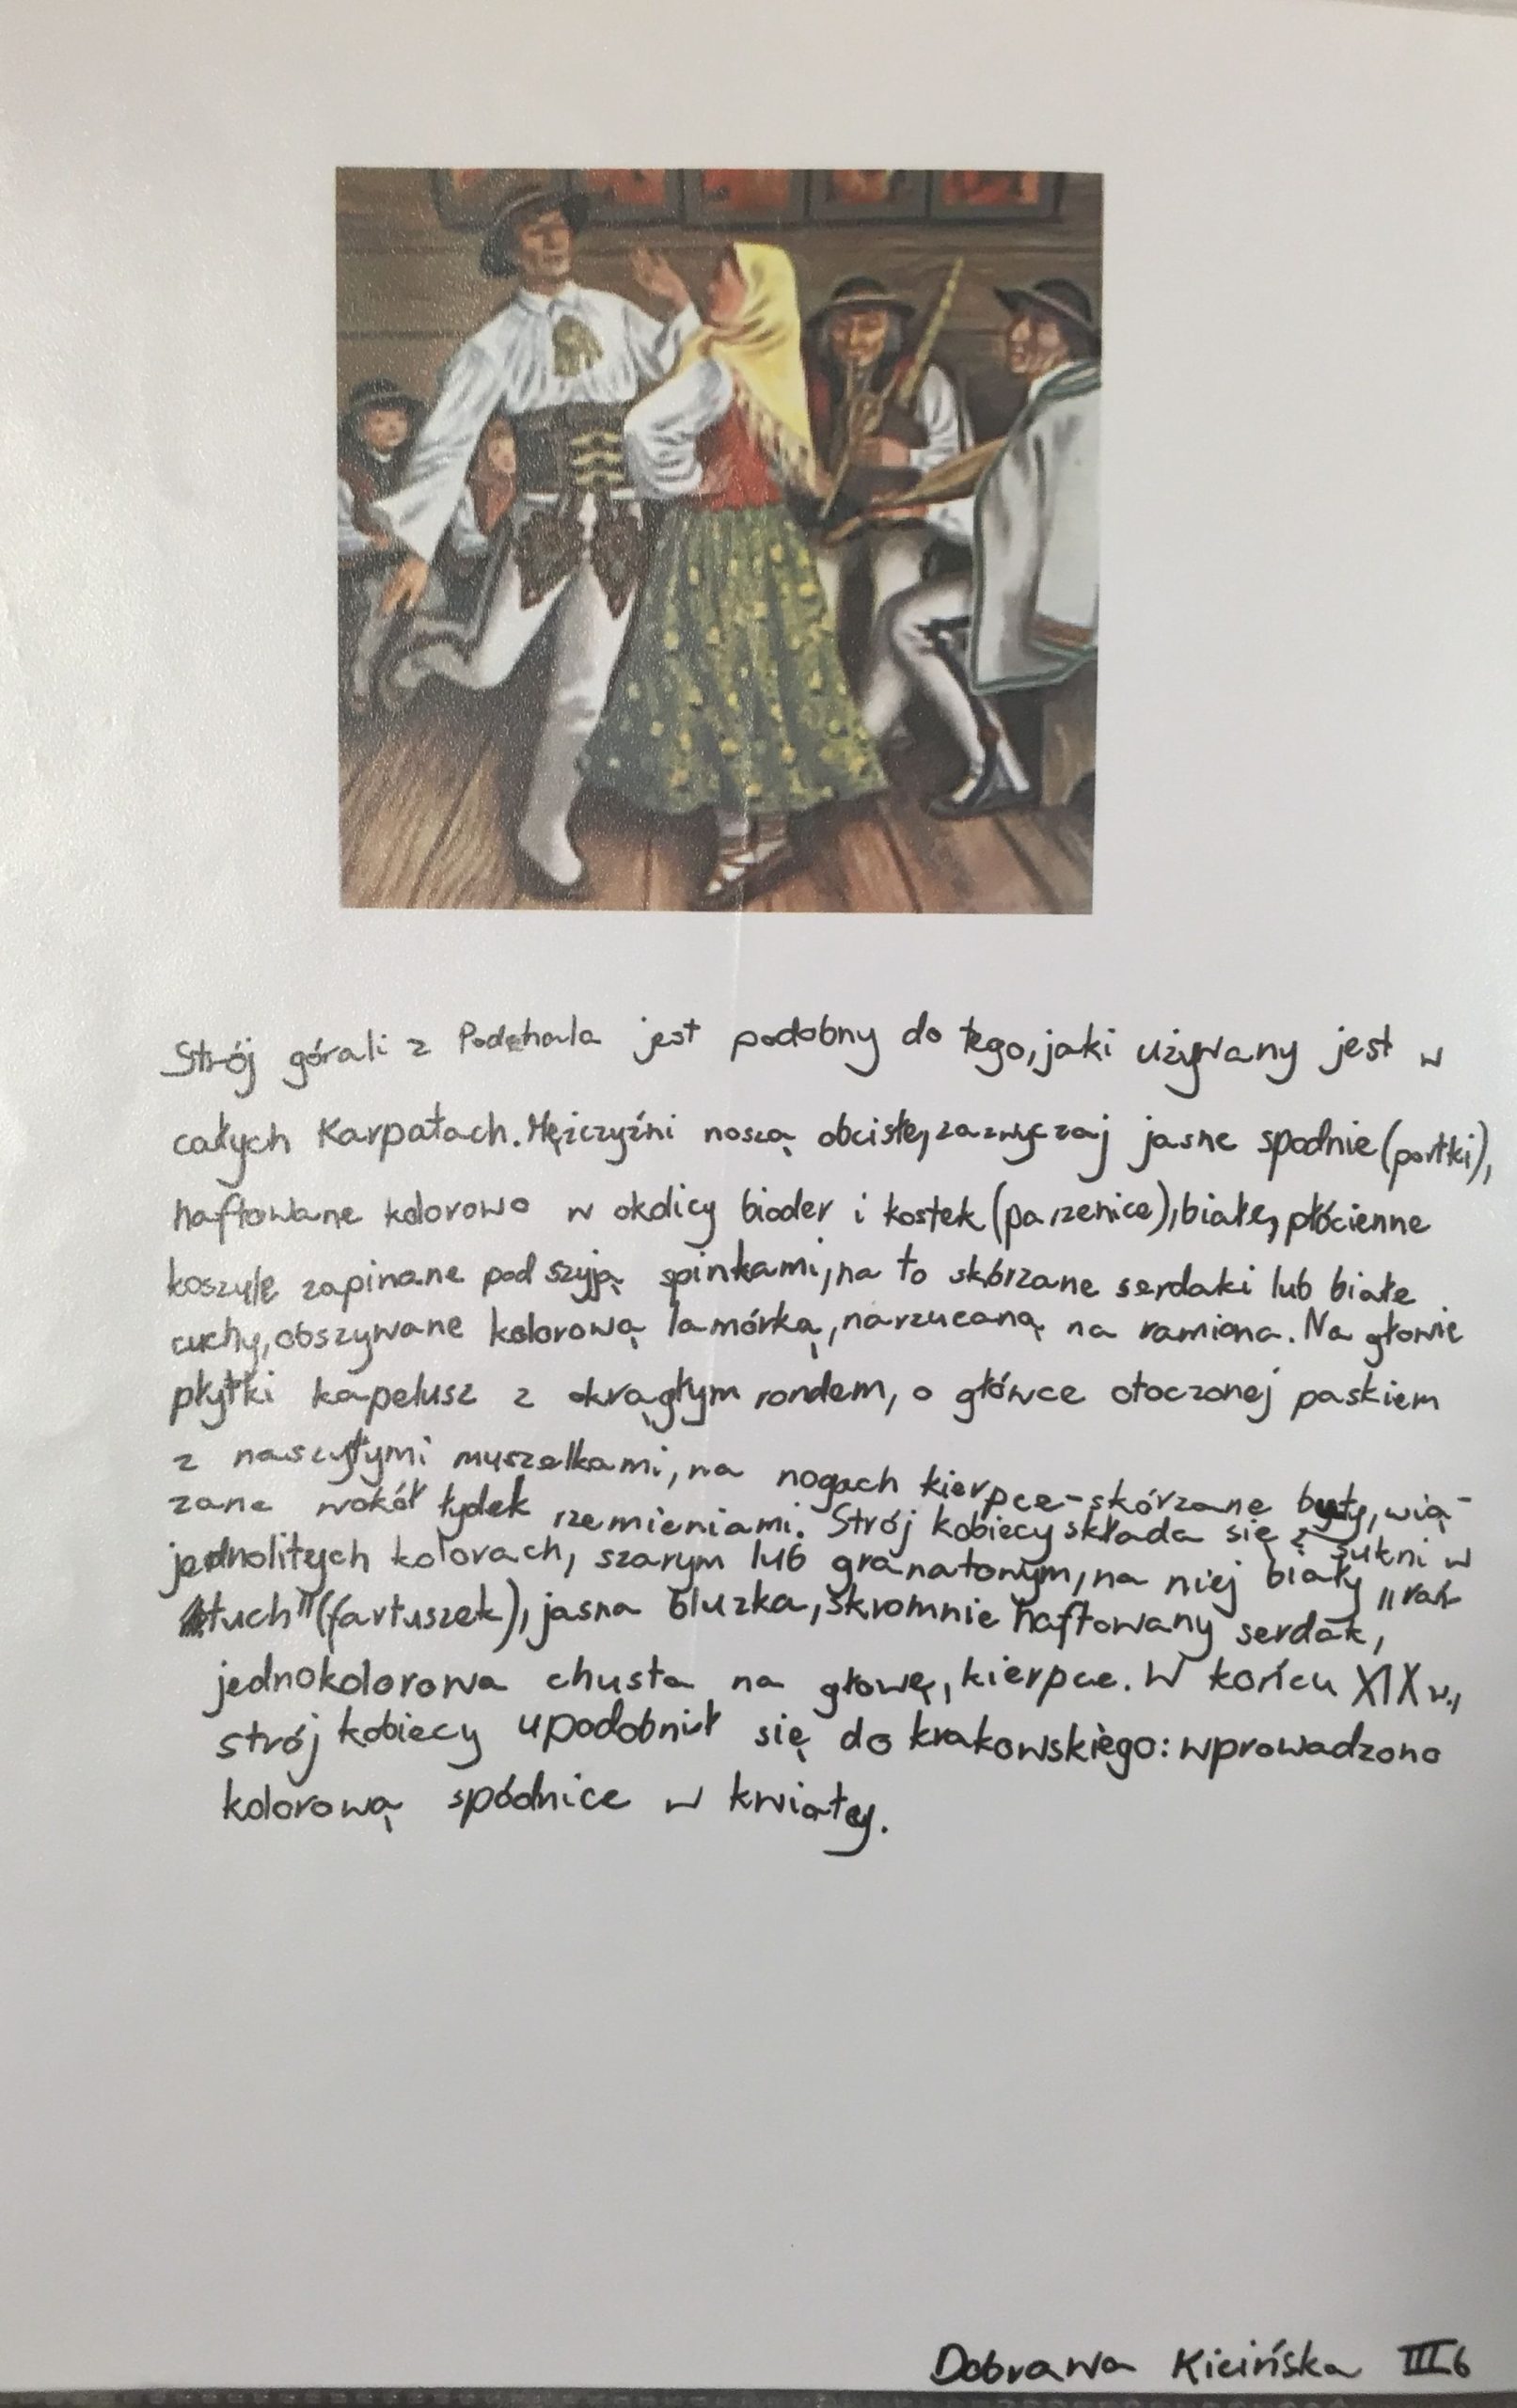 Strój górali z Podehala jest podobny do tego, jaki używany jest w
całych Karpatach. Mężczyźni noszą obcisłe, zazwyczaj jasne spodnie (portki),
haftowane kolorowo w okolicy bioder i kostek (parzenice), białe, płócienne
koszyle zapinane pod szyją spinkami, na to skórzane serdaki lub białe
cuchy, obszywane kolorową lamórką, narzucaną na ramiona. Na głowie
płytki kapelusz z okrągłym rondem, o główce otoczonej paskiem
z naszytymi muszelkami, na nogach kierpce - skórzane buty, wią-
zane wokół łydek rzemieniami. Strój kobiecy składa się z sukni w
jednolitych kolorach, szarym lub granatowym, na niej biały „rań-
tuch" (fartuszek), jasna bluzka, skromnie haftowany serdak,
jednokolorowa chusta na głowę, kierpce. W końcu XIX w.,
strój kobiecy upodobnił się do krakowskiego: wprowadzono
kolorową spódnice w kwiaty.
Dobrawa Kicińska III6